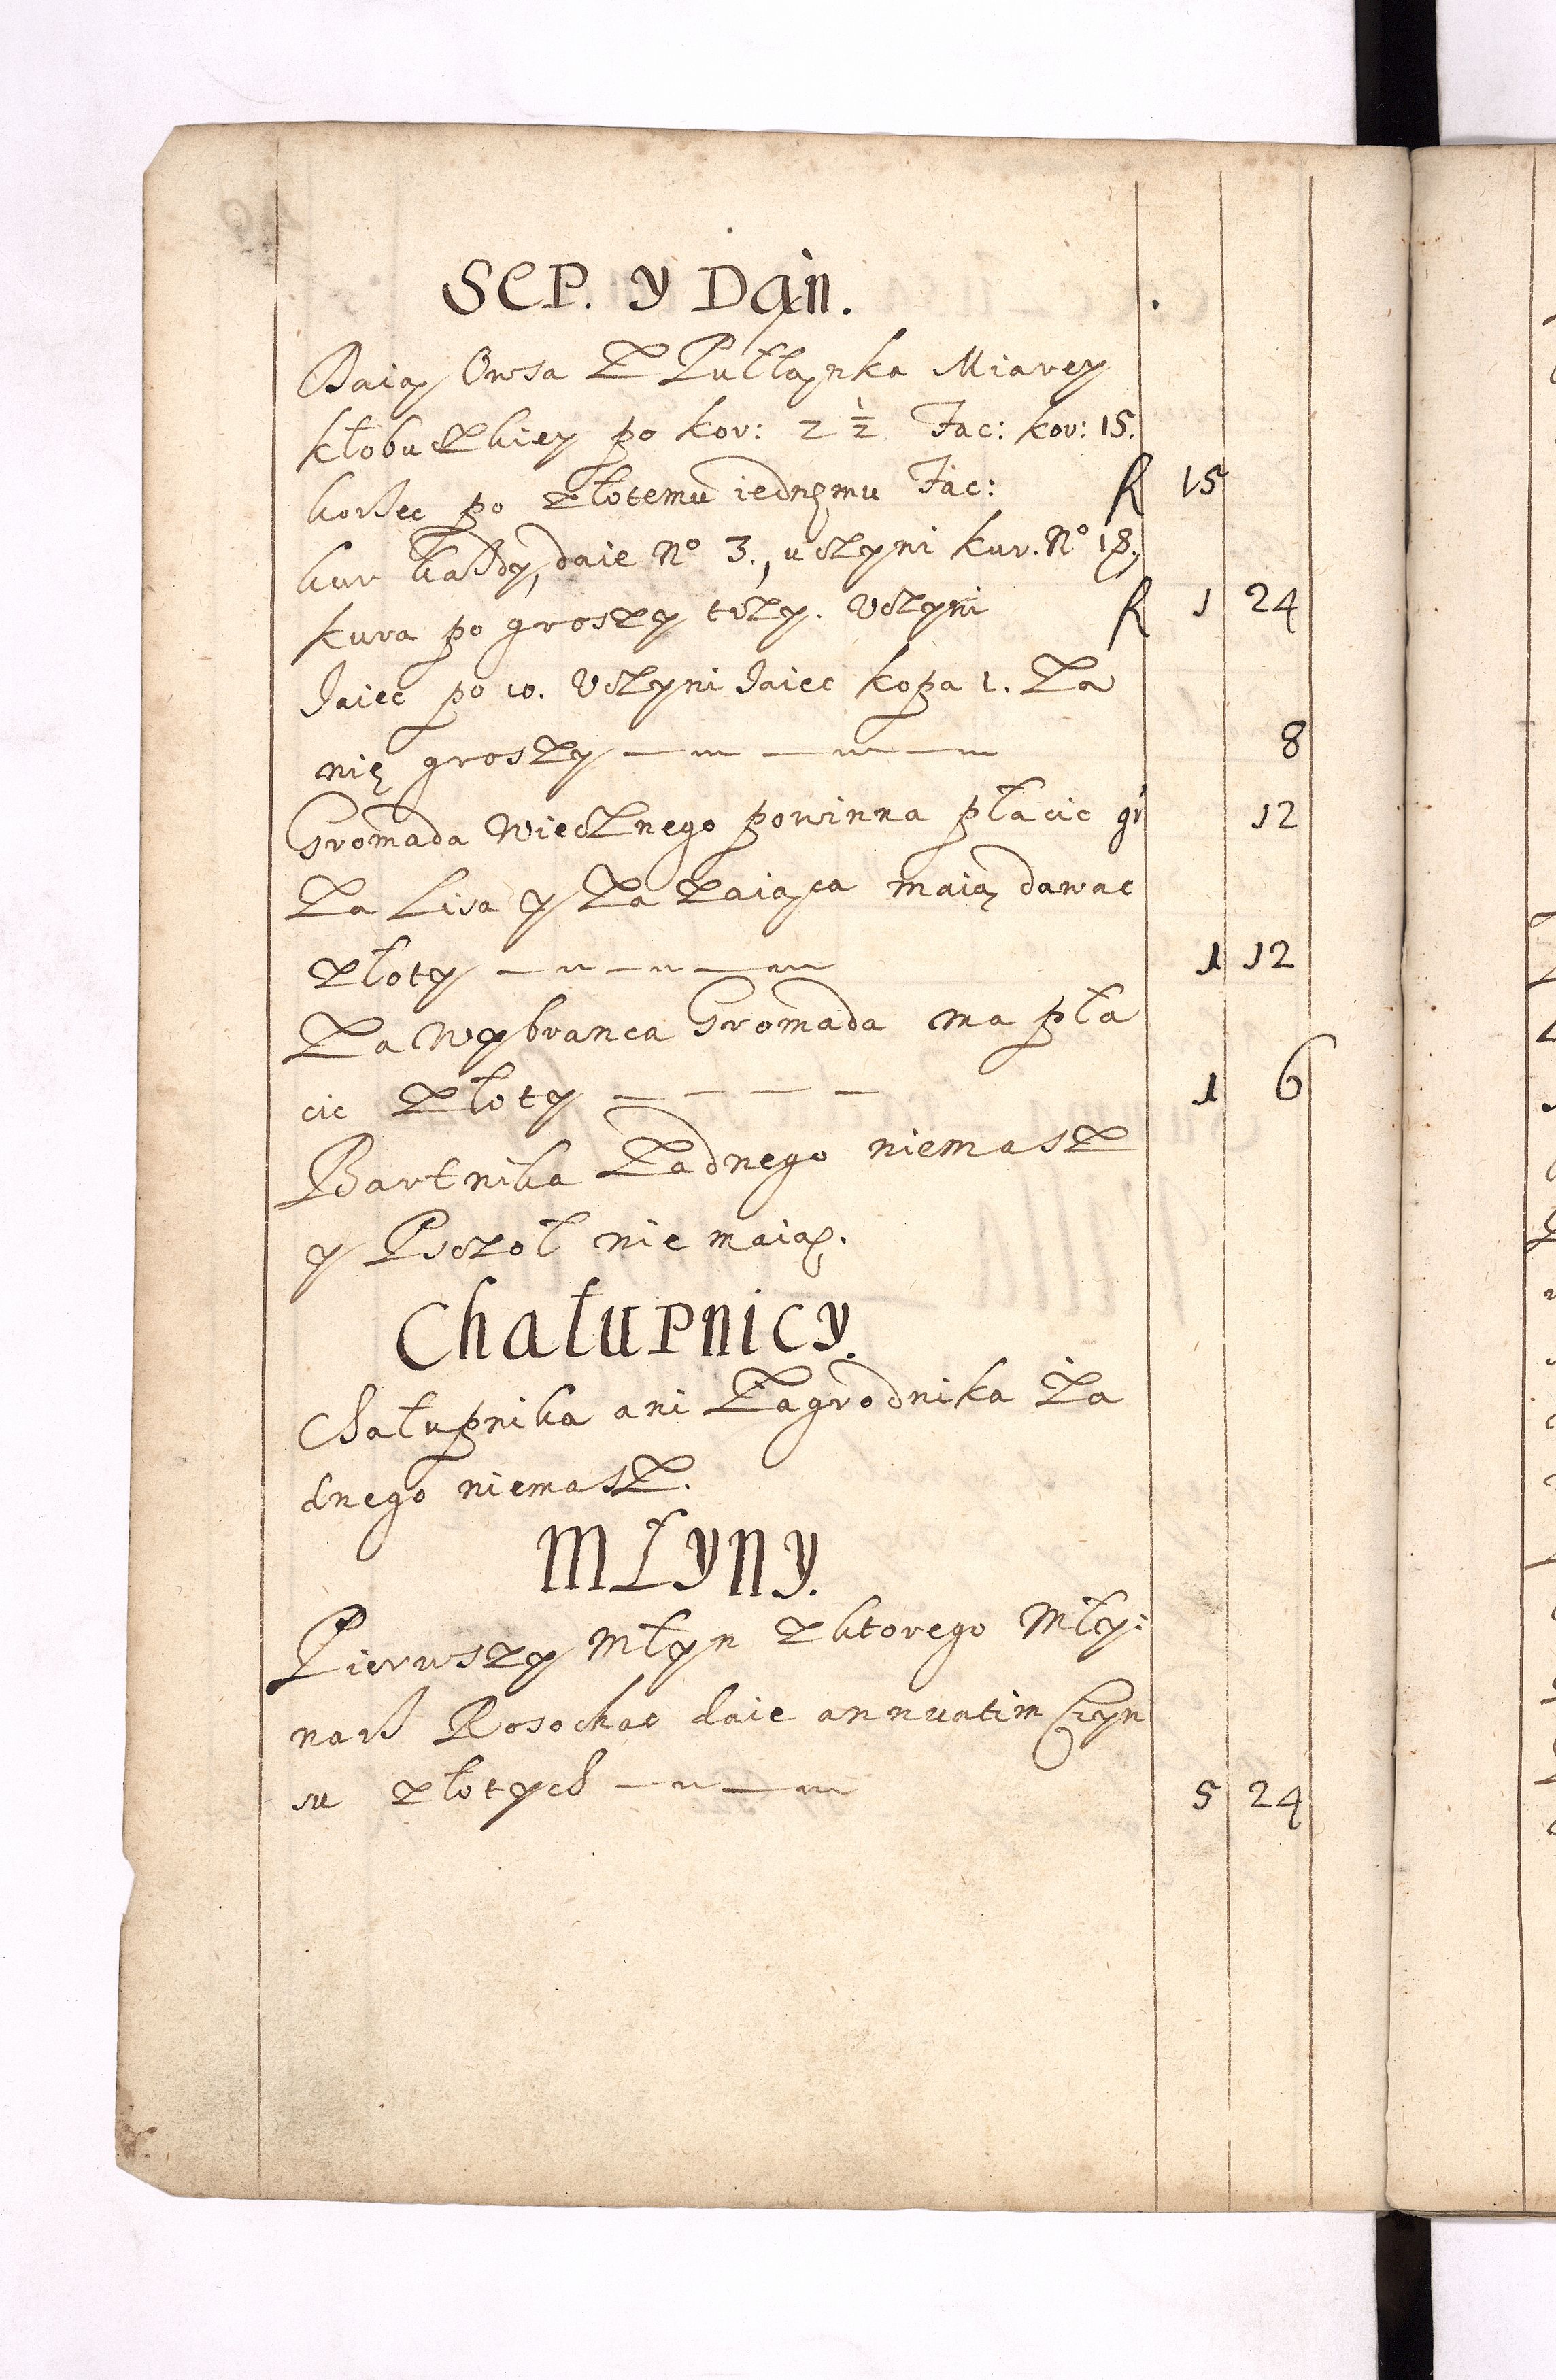 SEP. y Dąn.
Daią Owsa Z Pułłąnka Miarey
kłobuckiey po kor: 2 ½ Fac: kor: 15.
korzec po złotemu iednęmu Fac: fl 15
kur każdy, daie No 3., uczyni kur. No 18,
kura po groszy trzy. Uczyni fl 1 24
Jaiec po 10. Uczyni Jaiec kopa 1. Za
nię groszy 8
Gromada Wiecznego powinna płacic gr 12
Za Lisa y Za zaiąca maią dawac
złoty 1 12
Za Wybranca Gromada ma pła
cic złoty 1 6
Bartnika Zadnego niemasz
y Psczoł nie maią.
Chałupnicy.
Chałupnika ani Zagrodnika Ża
dnego niemasz.
Młyny.
Pierwszy Młyn zktorego Mły:
narz Rosochac daie annuatim Czyn
su złotych 5 24